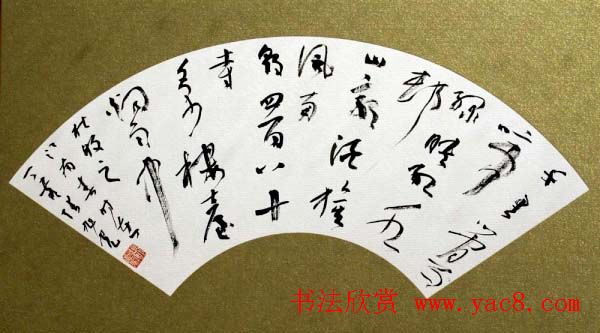 千里
莺啼
绿映红水
村
山郭酒旗
风南
朝四百八十
寺
多少楼台
烟雨中
杜牧之
江南春
书法欣赏 www.yac8.com